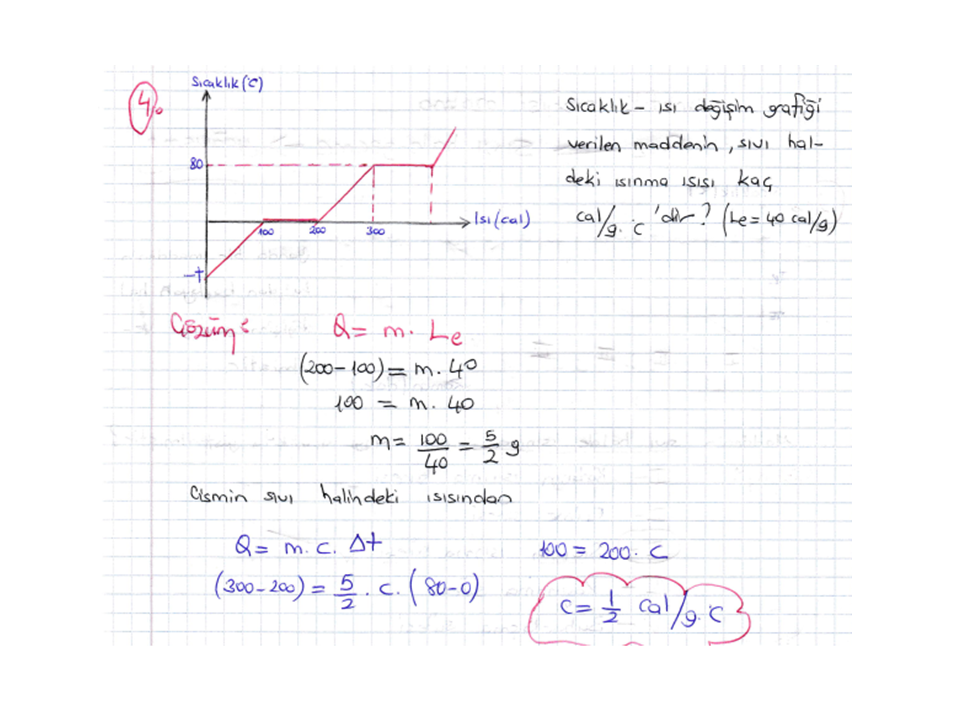 4.
Sıcaklık (°C)
80
-t
100 200 300
Isı (cal)
Sıcaklık - ısı değişim grafiği
verilen maddenin, sıvı hal-
deki ısınma ısısı kaç
cal/g.°C 'dir? (Le = 40 cal/g)
Çözüm:
Q = m. Le
(200-100) = m. 40
100 = m. 40
m = 100/40 = 5/2 g
Cismin sıvı halindeki ısısından
Q = m. c. Δt
(300-200) = 5/2 . c. (80-0)
100 = 200. c
c = 1/2 cal/g.°C